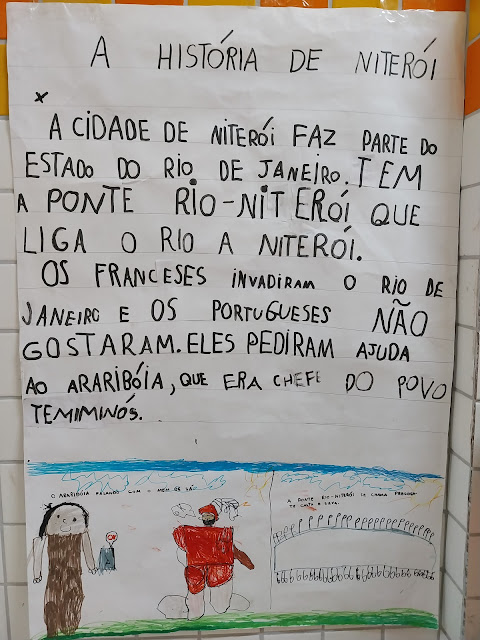 A HISTÓRIA DE NITERÓI
A CIDADE DE NITERÓI FAZ PARTE DO
ESTADO DO RIO DE JANEIRO. TEM
A PONTE RIO-NITERÓI QUE
LIGA O RIO A NITERÓI.
OS FRANCESES INVADIRAM O RIO DE
JANEIRO E OS PORTUGUESES NÃO
GOSTARAM. ELES PEDIRAM AJUDA
AO ARARIBÓIA, QUE ERA CHEFE DO POVO
TEMIMINÓS.
O ARARIBOIA FALANDO COM O MEM DE SÁ
A PONTE RIO-NITERÓI SE CHAMA
TE COSTA E SILVA